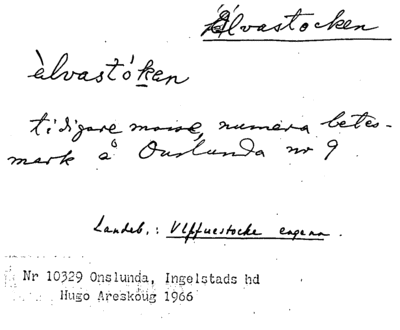 Älvastocken
älvastóken
tidigare mosse, numera betes-
mark å Onslunda nr 9
Landeb.: Vlffuestocke engenn.
Nr 10329 Onslunda, Ingelstads hd
Hugo Areskoug 1966